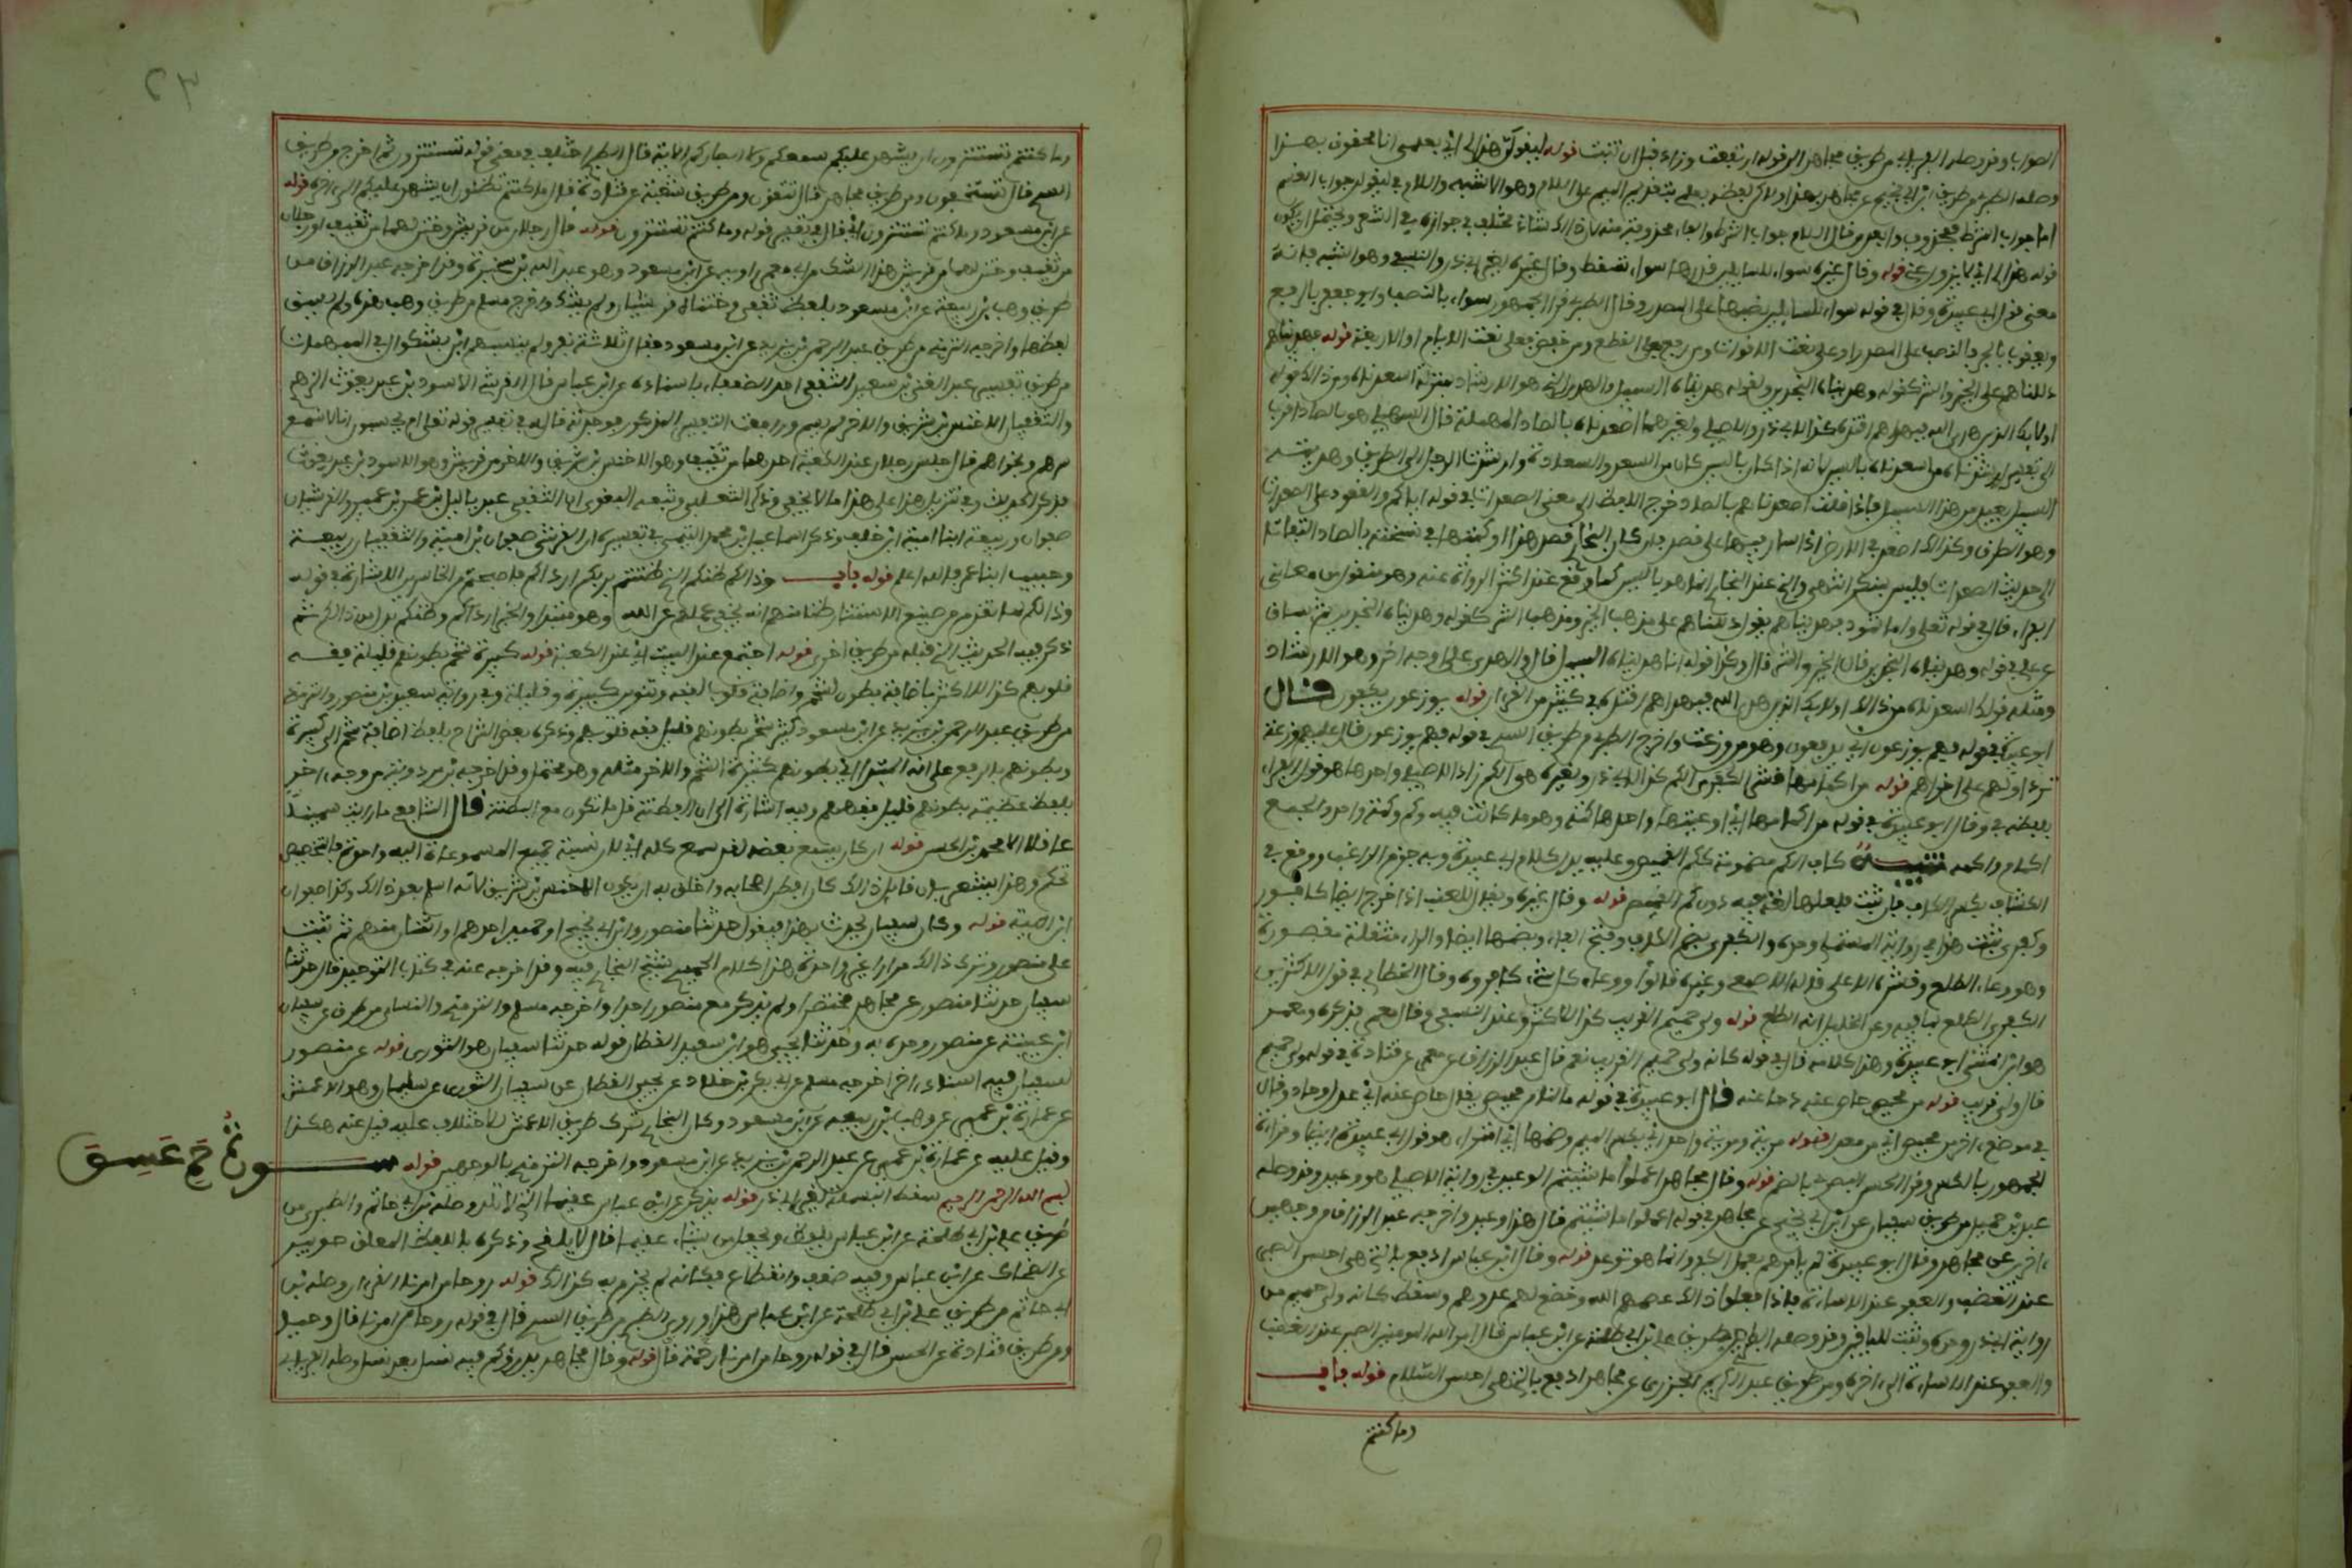 الصواب وقد وصله الفريابي من طريق مجاهد الى قوله ارتفعت وزاد قبل ان تنبت قوله ليقولن هذا لي اي بعلمي انا محقوق بهذا
وصله الطبري من طريق ابن ابي نجيح عن مجاهد بهذا ولاكن لفظه بعملي بتقديم الميم على اللام وهو الاشبه واللام في ليقولن جواب القسم
اما جواب الشرط فمحذوف وابعد من قال اللام جواب الشرط والفاء محذوفة منه لان ذالك شاذ مختلف في جوازه في الشعر ويحتمل ان يكون
قوله هذا لي اي لا يزول عني قوله وقال غيره سواء للسائلين قدرها سواء سقط وقال غيره لغير ابي ذر والنسفي وهو اشبه فانه
معنى قول ابي عبيدة وقال في قوله سواء للسائلين نصبها على المصدر وقال الطبري قرا الجمهور سواء بالنصب وابو جعفر بالرفع
ويعقوب بالجر فالنصب على المصدر او على نعت الاقوات ومن رفع فعلى القطع ومن خفض فعلى نعت الايام او الاربعة قوله فهديناهم
دللناهم على الخير والشر كقوله وهديناه النجدين وكقوله هديناه السبيل والهدى الذي هو الارشاد بمنزلة اسعدناه ومن ذالك قوله
اولائك الذين هدى الله فبهداهم اقتده كذا لابي ذر والاصيلي ولغيرهما اصعدناه بالصاد المهملة قال السهيلي هو بالصاد اقرب
الى تفسير ارشدناه من اسعدناه بالسين لانه اذا كان بالسين كان من السعد والسعادة وارشدت الرجل الى الطريق وهديته
السبيل بعيد من هذا التفسير فاذا قلت اصعدناهم بالصاد خرج اللفظ الى معنى الصعدات في قوله اياكم والقعود على الصعدات
وهي الطرق وكذالك اصعد في الارض اذا سار فيها على قصد فان كان البخاري قصد هذا وكتبها في نسخته بالصاد التفاتا
الى حديث الصعدات فليس بمنكر انتهى والذي عند البخاري انما هو بالسين كما وقع عند اكثر الرواة عنه وهو منقول من معاني
الفراء قال في قوله تعلى واما ثمود فهديناهم يقول دللناهم على مذهب الخير ومذهب الشر كقوله وهديناه النجدين ثم ساق
عن علي في قوله وهديناه النجدين قال الخير والشر قال وكذا قوله انا هديناه السبيل قال والهدى على وجه اخر وهو الارشاد
ومثله قولك اسعدناه من ذالك اولائك الذين هدى الله فبهداهم اقتده في كثير من القران قوله يوزعون يكفون قال
ابو عبيدة في قوله فهم يوزعون اي يدفعون وهو من وزعت واخرج الطبري من طريق السدي في قوله فهم يوزعون قال عليهم وزعة
ترد اولاهم على اخراهم قوله من اكمامها قشر الكفرى الكم كذا لابي ذر ولغيره هو الكم زاد الاصيلي واحدها هو قول الفراء
بلفظه وقال ابو عبيدة في قوله من اكمامها اي اوعيتها واحدها كمة وهو ما كانت فيه وكم وكمة واحد والجمع
اكمام واكمة تنبيه كاف الكم مضمومة ككم القميص وعليه يدل كلام ابي عبيدة وبه جزم الراغب ووقع في
الكشاف بكسر الكاف فان ثبت فلعلها لغة فيه دون كم القميص قوله وقال غيره ويقال للعنب اذا خرج ايضا كافور
وكفرى ثبت هذا في رواية المستملي وحده والكفرى بضم الكاف وفتح الفاء وبضمها ايضا والراء مثقلة مقصورة
وهو وعاء الطلع وقشره الاعلى قاله الاصمعي وغيره قالوا ووعاء كل شيء كافوره وقال الخطابي في قول الاكثرين
الكفرى الطلع بما فيه وعن الخليل انه الطلع قوله ولي حميم القريب كذا للاكثر وعند النسفي وقال معمر فذكره ومعمر
هو ابن المثنى ابو عبيدة وهذا كلامه قال في قوله كانه ولي حميم القريب نعم قال عبد الرزاق عن معمر عن قتادة في قوله ولي حميم
قال ولي قريب قوله من محيص حاص عنه حاد عنه قال ابو عبيدة في قوله مالنا من محيص يقال حاص عنه اي عدل وحاد وقال
في موضع اخر من محيص اي من معدل قوله مرية ومرية واحد اي بكسر الميم وضمها اي امتراء هو قول ابي عبيدة ايضا وقراءة
الجمهور بالكسر وقرا الحسن البصري بالضم قوله وقال مجاهد اعملوا ما شئتم الوعيد في رواية الاصيلي هو وعيد وقد وصله
عبد بن حميد من طريق سفيان عن ابن ابي نجيح عن مجاهد في قوله اعملوا ما شئتم قال هذا وعيد واخرجه عبد الرزاق من وجهين
اخرين عن مجاهد وقال ابو عبيدة لم يامرهم بعمل الكفر وانما هو توعد قوله وقال ابن عباس ادفع بالتي هي احسن الصبر
عند الغضب والعفو عند الاساءة فاذا فعلوا ذالك عصمهم الله وخضع لهم عدوهم وسقط كانه ولي حميم من
رواية ابي ذر وحده وثبت للباقين وقد وصله الطبري من طريق علي بن ابي طلحة عن ابن عباس قال امر الله المومنين بالصبر عند الغضب
والعفو عند الاساءة الى اخره ومن طريق عبد الكريم الجزري عن مجاهد ادفع بالتي هي احسن السلام قوله باب
وما كنتم
٢٣
وما كنتم تستترون ان يشهد عليكم سمعكم ولا ابصاركم الاية قال الطبري اختلف في معنى قوله تستترون ثم اخرج من طريق
السدي قال تستخفون ومن طريق مجاهد قال تتقون ومن طريق شعبة عن قتادة قال ما كنتم تظنون ان يشهد عليكم الى اخره قوله
عن ابن مسعود وما كنتم تستترون اي قال في تفسير قوله وما كنتم تستترون قوله قال رجلان من قريش وختن لهما من ثقيف او رجلان
من ثقيف وختن لهما من قريش هذا الشك من ابي معمر راويه عن ابن مسعود وهو عبد الله بن سخبرة وقد اخرجه عبد الرزاق من
طريق وهب بن ربيعة عن ابن مسعود بلفظ ثقفي وختناه قرشيان ولم يشك واخرج مسلم من طريق وهب هذه ولم يسق
لفظها واخرجه الترمذي من طريق عبد الرحمن بن يزيد عن ابن مسعود فقال ثلاثة نفر ولم ينسبهم ابن بشكوال في المبهمات
من طريق تفسير عبد الغني بن سعيد الثقفي احد الضعفاء باسناده عن ابن عباس قال القرشي الاسود بن عبد يغوث الزهري
والثقفيان الاخنس بن شريق والاخر لم يسم وراجعت التفسير المذكور فوجدته قال في تفسير قوله تعلى ام يحسبون انا لا نسمع
سرهم ونجواهم قال جلس رجلان عند الكعبة احدهما من ثقيف وهو الاخنس بن شريق والاخر من قريش وهو الاسود بن عبد يغوث
فذكر الحديث وفي تنزيل هذا على هذا ما لا يخفى وذكر الثعلبي وتبعه البغوي ان الثقفي عبد ياليل بن عمرو بن عمير والقرشيان
صفوان وربيعة ابنا امية ابن خلف وذكر اسماعيل بن محمد التيمي في تفسيره ان القرشي صفوان بن امية والثقفيان ربيعة
وحبيب ابنا عمرو فالله اعلم قوله باب وذالكم ظنكم الذي ظننتم بربكم ارداكم فاصبحتم من الخاسرين الاشارة في قوله
وذالكم لما تقدم من صنيع الاستتار ظنا منهم انه يخفي عملهم عن الله وهو مبتدا والخبر ارداكم وظنكم بدل من ذالكم ثم
ذكر فيه الحديث الذي قبله من طريق اخرى قوله اجتمع عند البيت اي عند الكعبة قوله كثيرة شحم بطونهم قليلة فقه
قلوبهم كذا للاكثر باضافة بطون لشحم واضافة قلوب لفقه وتنوين كثيرة وقليلة وفي رواية سعيد بن منصور والترمذي
من طريق عبد الرحمن بن يزيد عن ابن مسعود كثير شحم بطونهم قليل فقه قلوبهم وذكره بعض الشراح بلفظ اضافة شحم الى كثيرة
وبطونهم بالرفع على انه المبتدا اي بطونهم كثيرة الشحم والاخر مثله وهو محتمل وقد اخرجه ابن مردويه من وجه اخر
بلفظ عظيمة بطونهم قليل فقههم وفيه اشارة الى ان الفطنة قل ما تكون مع البطنة قال الشافعي ما رايت سمينا
عاقلا الا محمد بن الحسن قوله ان كان يسمع بعضه لقد سمع كله اي لان نسبة جميع المسموعات اليه واحدة فالتخصيص
تحكم وهذا يشعر بان قايل ذالك كان افطن اصحابه واخلق به ان يكون الاخنس بن شريق لانه اسلم بعد ذالك وكذا صفوان
ابن امية قوله وكان سفيان يحدث بهذا فيقول حدثنا منصور وابن ابي نجيح او حميد احدهم او اثنان منهم ثم ثبت
على منصور وترك ذالك مرارا غير واحدة هذا كلام الحميدي شيخ البخاري فيه وقد اخرجه عنه في كتاب التوحيد قال حدثنا
سفيان حدثنا منصور عن مجاهد مختصرا ولم يذكر مع منصور احدا واخرجه مسلم والترمذي والنسائي من طرق عن سفيان
ابن عيينة عن منصور وحده به وحدثنا يحيى هو ابن سعيد القطان قوله حدثنا سفيان هو الثوري قوله عن منصور
لسفيان فيه اسناد اخر اخرجه مسلم عن ابي بكر بن خلاد عن يحيى القطان عن سفيان الثوري عن سليمان وهو الاعمش
عن عمارة بن عمير عن وهب بن ربيعة عن ابن مسعود وكان البخاري ترك طريق الاعمش للاختلاف عليه قيل عنه هكذا
وقيل عليه عن عمارة بن عمير عن عبد الرحمن بن يزيد عن ابن مسعود واخرجه الترمذي بالوجهين قوله سورة حم عسق
بسم الله الرحمن الرحيم سقطت البسملة لغير ابي ذر قوله يذكر عن ابن عباس عقيما التي لا تلد وصله ابن ابي حاتم والطبري من
طريق علي بن ابي طلحة عن ابن عباس بلفظ ويجعل من يشاء عقيما قال لا يلقح وذكره باللفظ المعلق جويبر
عن الضحاك عن ابن عباس وفيه ضعف وانقطاع فكانه لم يجزم به كذالك قوله روحا من امرنا القران وصله ابن
ابي حاتم من طريق علي بن ابي طلحة عن ابن عباس بهذا وروى الطبري من طريق السدي قال في قوله روحا من امرنا قال وحيا
ومن طريق قتادة عن الحسن قال في قوله روحا من امرنا رحمة قال قوله وقال مجاهد يذرؤكم فيه نسل بعد نسل وصله الفريابي